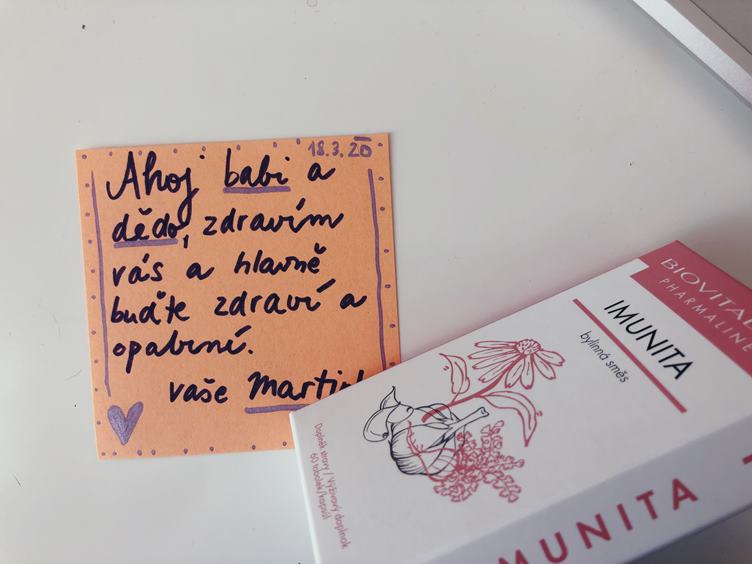 18.3.20
Ahoj babi a
dědo, zdravím
vás a hlavně
buďte zdraví a
opatrní.
vaše
BIOVITAL
PHARMALINE
IMUNITA
bylinná směs
Doplněk stravy / Výživový doplnok
60 tobolek/kapsúl
IMUNITA